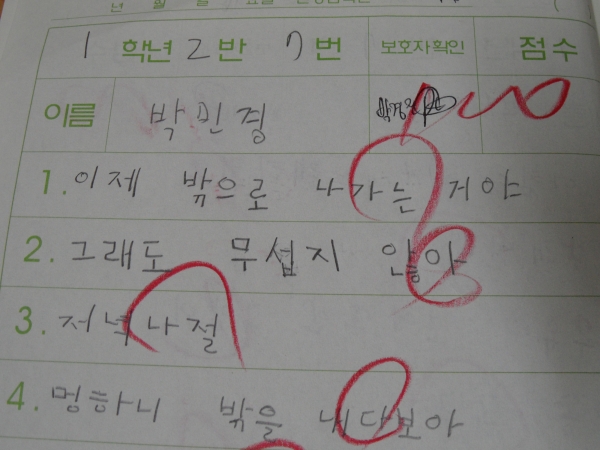 년 월 일 요일
1 학년 2 반 7 번 보호자확인 점수
이름 박민경 100
1. 이제 밖으로 나가는 거야
2. 그래도 무섭지 않아
3. 저녁나절
4. 멍하니 밖을 내다보아